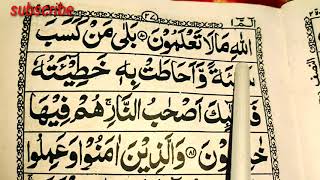 subscribe
الٓمّٓ ١
٢٧
اللّٰهِ مَا لَا تَعْلَمُوْنَ ۞ بَلٰى مَنْ كَسَبَ
سَيِّئَةً وَّاَحَاطَتْ بِهٖ خَطِيْٓئَتُهٗ
فَاُولٰٓئِكَ اَصْحٰبُ النَّارِ ۚ هُمْ فِيْهَا
خٰلِدُوْنَ ۞ وَالَّذِيْنَ اٰمَنُوْا وَعَمِلُوا